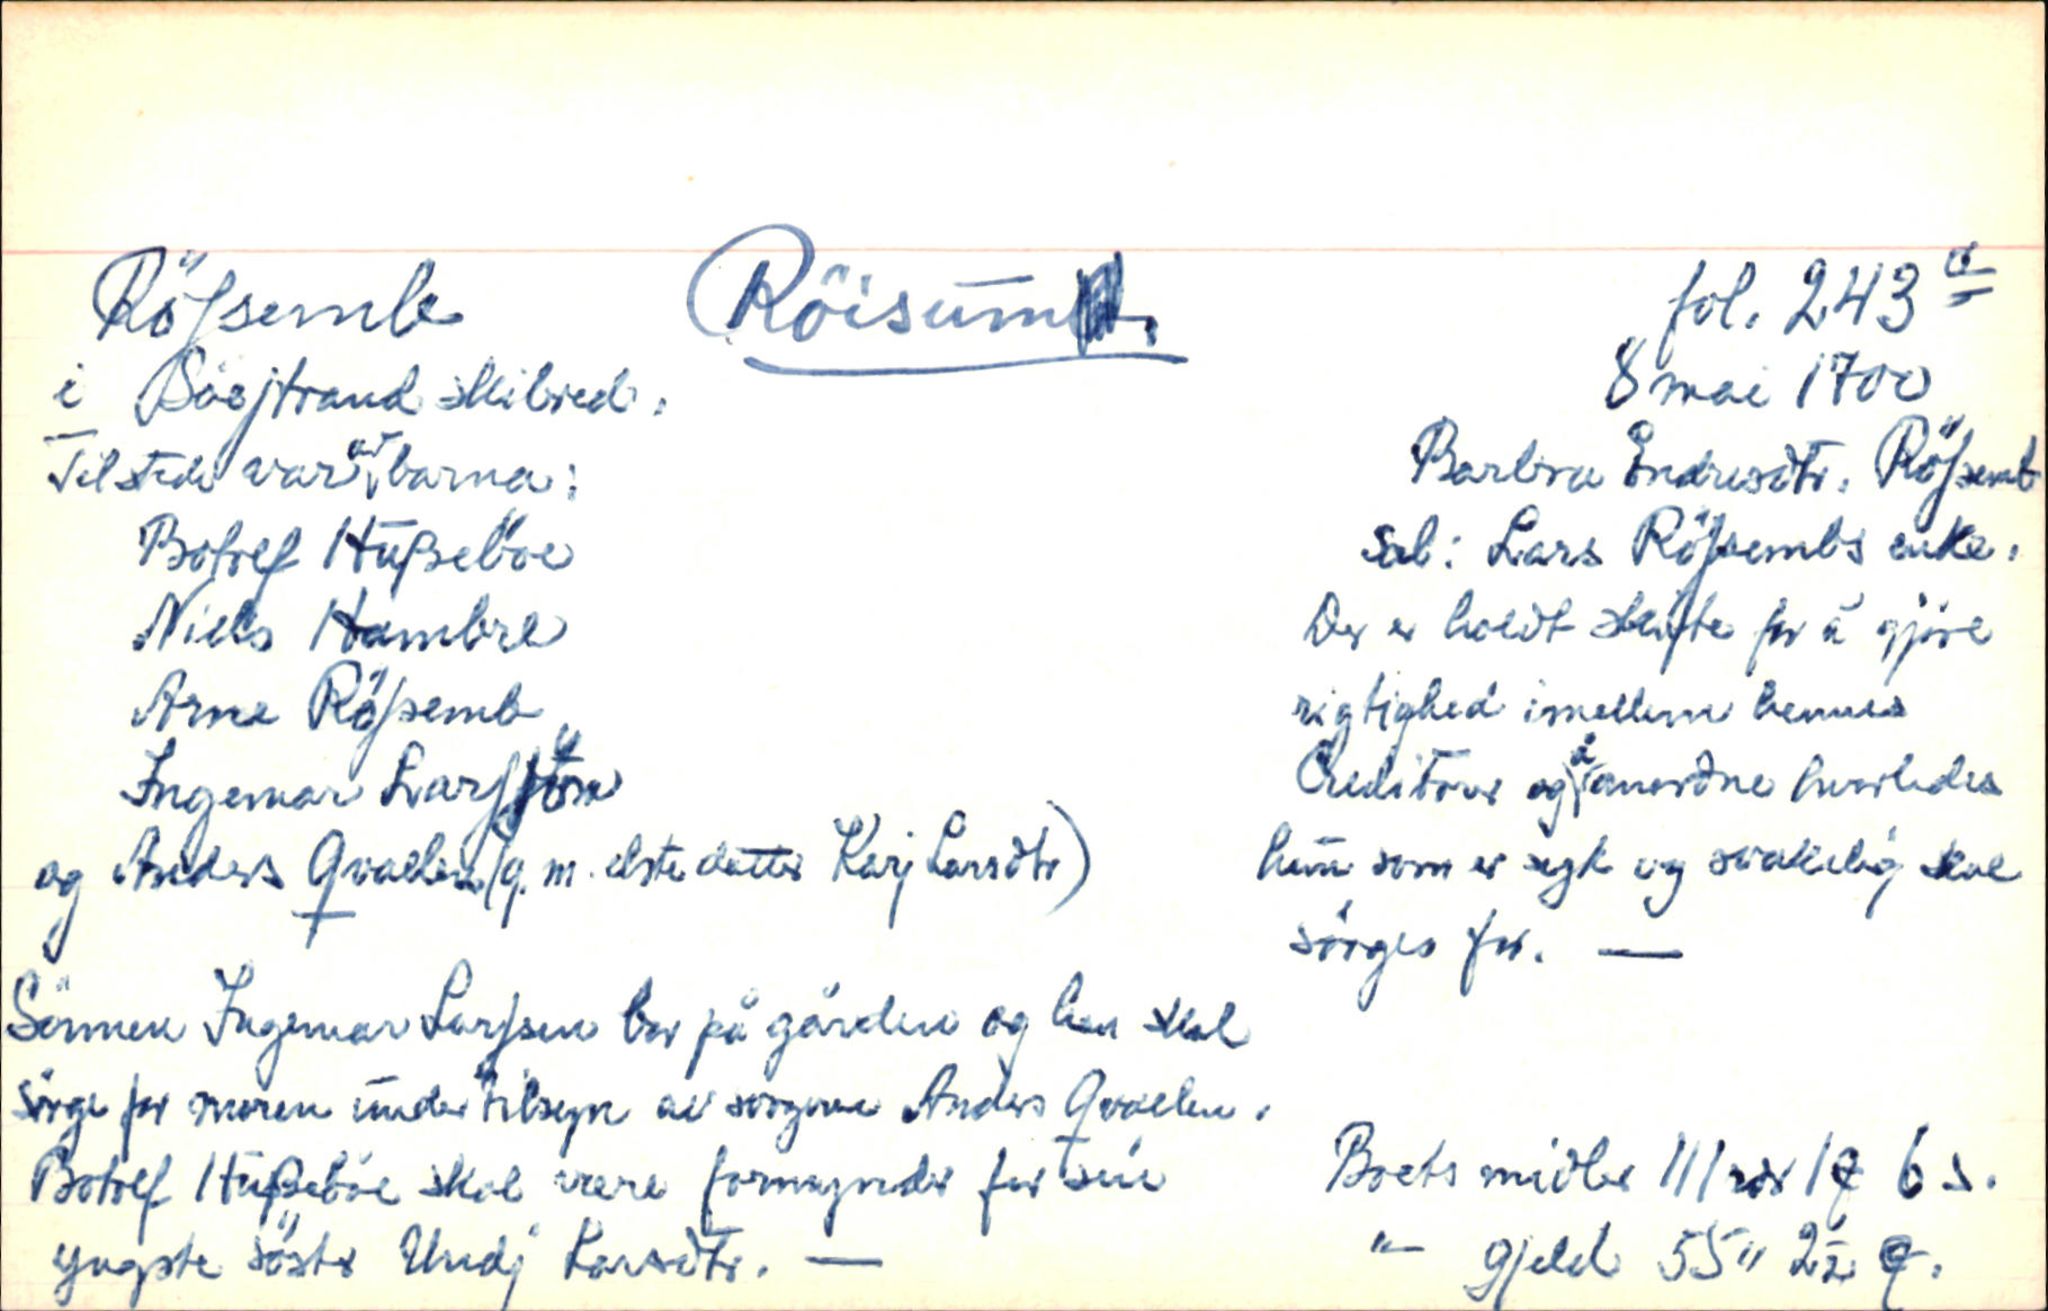 Röſsemb
(Röisum.
fol. 243 a
i Söestrand skibred.
8 mai 1700
Tilstede var av barna:
Barbra Endresdtr. Röſsemb
Botolf Huſseböe
sal: Lars Röſsembs enke.
Niels Hambre
Der er holdt skifte for å gjöre
Arne Röſsemb
rigtighed imellem hennes
Ingemar Larſsön
Creditorer og å anordne hvorledes
og Anders Qvaelen (g. m. elste datter Karj Larsdtr)
hun som er syk og svakelig skal
sörges for. —
Sönnen Ingemar Larſsen bor på gården og han skal
sörge for moren under tilsyn av svogeren Anders Qvaelen.
Botolf Huſseböe skal være formynder for sin
yngste söster Undj Larsdtr. —
Boets midler 111 rdr 1 q 6 s.
"— gjeld 55 " 2½ q.